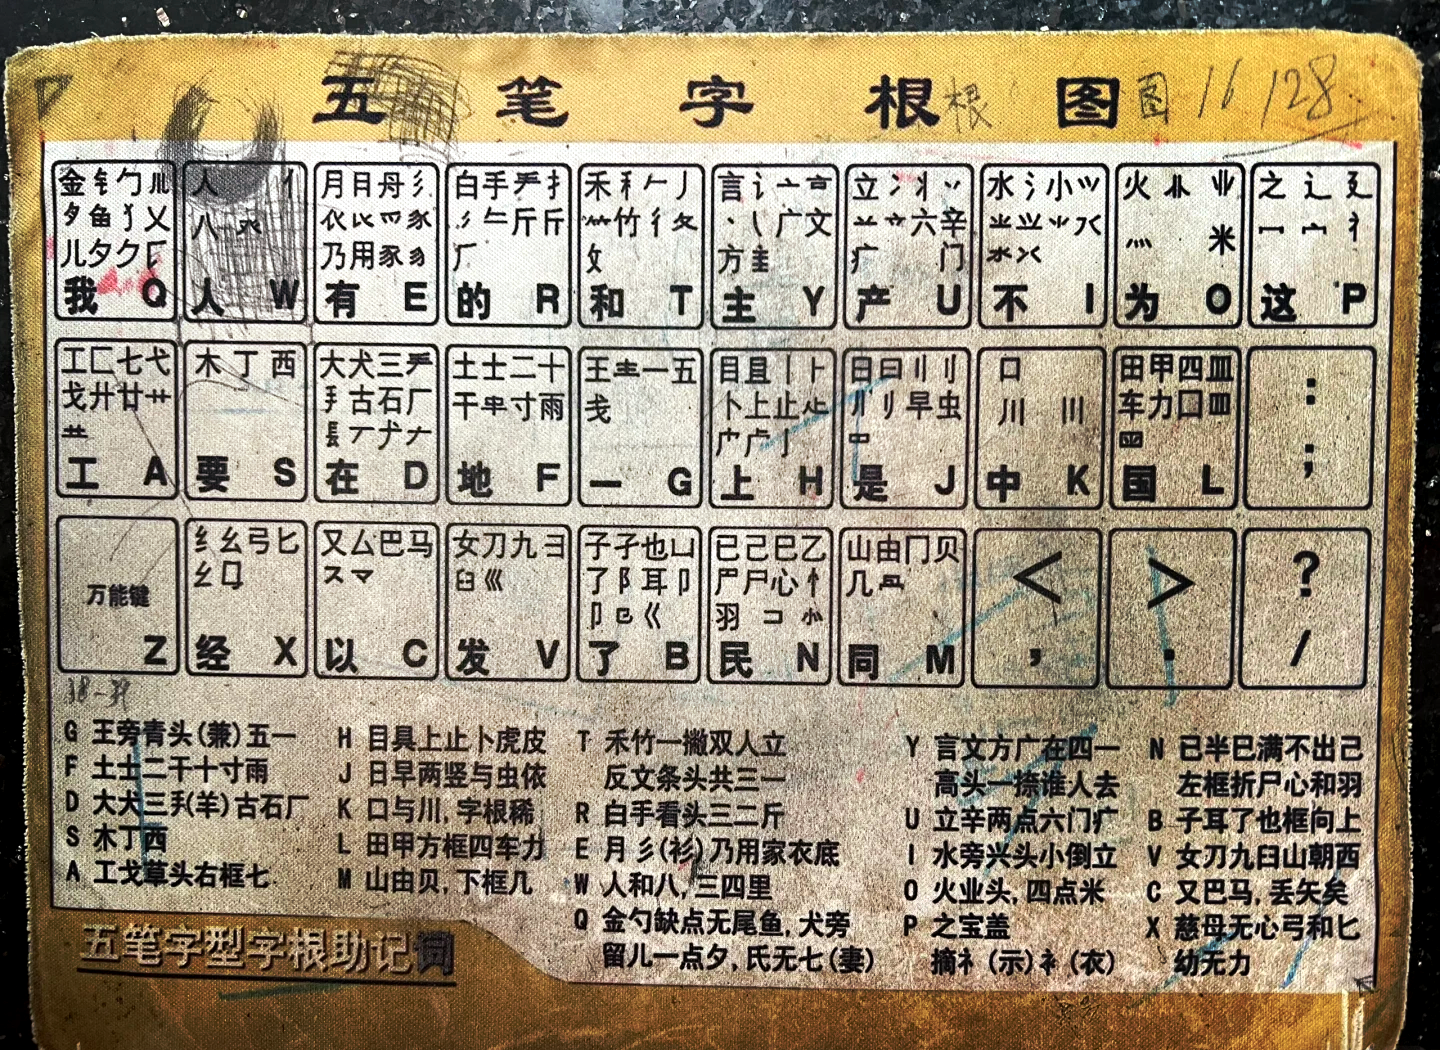 五笔字根图 根 图 16 128
金钅勹
鱼犭乂
儿夕𠂊
我 Q
人亻
八
人 W
月日丹彡
衣豕
乃用豕
有 E
白手扌
斤斤
厂
的 R
禾丿
竹彳夂
攵
和 T
言讠亠
丶广文
方圭
主 Y
立冫丬丷
六辛
疒门
产 U
水氵小
不 I
火
灬米
为 O
之辶廴
冖宀礻
这 P
工匚七弋
戈廾廿艹
工 A
木丁西
要 S
大犬三
古石厂
在 D
土士二十
干寸雨
地 F
王一五
戋
一 G
目且丨
卜上止
上 H
日曰刂
早虫
是 J
口
川
中 K
田甲四皿
车力囗
国 L
:
;
万能键
Z
纟幺弓匕
经 X
又厶巴马
以 C
女刀九彐
臼巛
发 V
子孑也凵
了阝耳卩
卩巜
了 B
已己巳乙
尸心忄
羽
民 N
山由冂贝
几
同 M
<
,
>
.
?
/
38-39
G 王旁青头(兼)五一
F 土士二干十寸雨
D 大犬三(羊)古石厂
S 木丁西
A 工戈草头右框七
H 目具上止卜虎皮
J 日早两竖与虫依
K 口与川,字根稀
L 田甲方框四车力
M 山由贝,下框几
T 禾竹一撇双人立
反文条头共三一
R 白手看头三二斤
E 月彡(衫)乃用家衣底
W 人和八,三四里
Q 金勺缺点无尾鱼,犬旁
留儿一点夕,氏无七(妻)
Y 言文方广在四一
高头一捺谁人去
U 立辛两点六门疒
I 水旁兴头小倒立
O 火业头,四点米
P 之宝盖
摘礻(示)衤(衣)
N 已半巳满不出己
左框折尸心和羽
B 子耳了也框向上
V 女刀九臼山朝西
C 又巴马,丢矢矣
X 慈母无心弓和匕
幼无力
五笔字型字根助记词